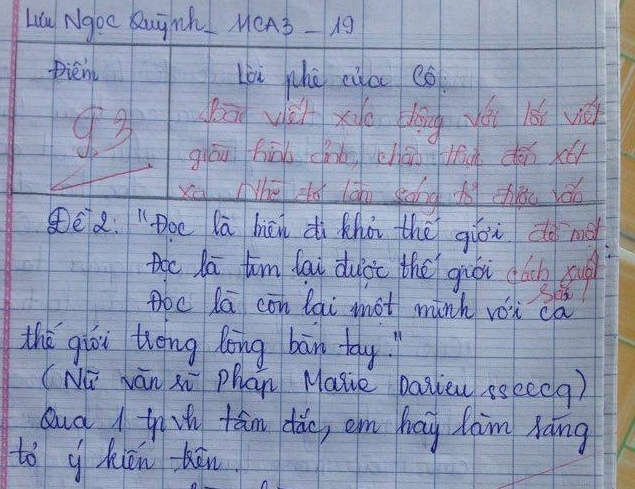 Lưu Ngọc Quỳnh_ MCA3 - 19
Điểm
Lời phê của Cô.
9,3
Bài viết xúc động với lối viết
giàu hình ảnh, chân thực đến xót
xa. Nhờ đó làm sáng tỏ được vấn
đề một
cách xuất
sắc
Đề 2: "Đọc là biến đi khỏi thế giới
Đọc là tìm lại được thế giới
Đọc là còn lại một mình với cả
thế giới trong lòng bàn tay."
(Nữ văn sĩ Pháp Marie Darieu sseccq)
Qua 1 tp vh tâm đắc, em hãy làm sáng
tỏ ý kiến trên.